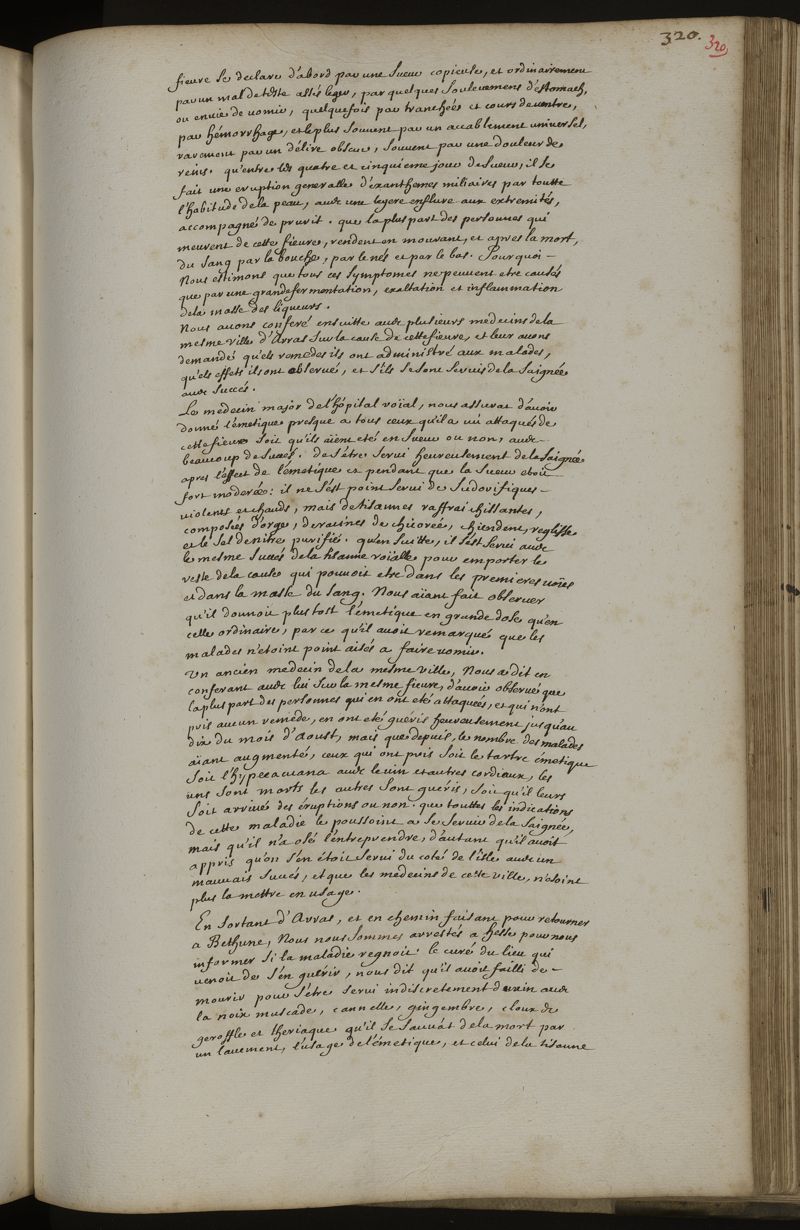 320. 320
fieure se declare d'abord par une sueur copieuse, et ordinairement
par un mal de teste assés leger, par quelques soulevemens d'estomach,
ou envie de uomir, quelquefois par tranchées et cours de ventre,
par hémorrhage, et le plus souvent par un accablement universel,
rarement par un délire obscur, souvent par une douleur de
reins. qu'entre les quatre et cinquieme jour de sueur, il se
fait une eruption generalle d'éxanthemes miliaires par toutte
l'habitude de la peau, avec une legere enflure aux extremités,
accompagné de prurit. que la plus part des personnes qui
meurent de cette fieure, rendent en mourant, et apres la mort,
du sang par la bouche, par le nés et par le bas. Pourquoi –
Nous estimons que tous ces symptomes ne peuuent etre causés
que par une grande fermentation, exaltation et inflammation
de la masse des liqueurs.
Nous auons conferé ensuitte avec plusieurs medecins de la
mesme ville d'Arras sur la cause de cette fieure, et leur auons
demandé quels remedes ils ont administré aux malades,
quels effets ils ont observé, et s'ils se sont seruis de la saignée
avec succés.
Le medecin major de l'hôpital roïal, nous assurat d'auoir
donné l'émetique presque a tous ceux qu'il a vû attaqués de
cette fieure soit qu'ils aïent eté en sueur ou non, avec –
beaucoup de succés. de s'étre serui heureusement de la saignée
apres l'effect de l'émetique et pendant que la sueur etoit
fort moderée: il ne s'est point serui de sudorifiques –
violents et chauds, mais de tisannes raffraichissantes,
composées d'orge, de racines de chicorée, chiendent, reglisse
et le sel de nitre purifié. qu'ensuitte, il s'est serui avec
le mesme succés de la tisanne roïalle pour emporter le
reste de la cause qui pouuoit etre dans les premieres voïes
et dans la masse du sang. Nous aïant fait obseruer
qu'il donnoit plus tost l'émetique en grande dose qu'en
celle ordinaire, par ce qu'il auoit remarqué que les
malades n'etoint point aisés a faire uomir.
Un ancien medecin de la mesme ville, Nous a dit en
conferant avec lui sur la mesme fieure, d'auoir obserué que
la plus part des personnes qui en ont eté attaquées, et qui n'ont
pris aucun remede, en ont eté guéris heureusement jusqu'au
dix du mois d'aoust, mais que depuis, le nombre des malades
aïant augmenté, ceux qui ont pris soit le tartre émetique
soit l'hypecacuana avec le uin et autres cordiaux, les
uns sont morts les autres sont gueris, soit qu'il leurs
soit arriué des éruptions ou non. que touttes les indications
de cette maladie le poussoint a se seruir de la saignée,
mais qu'il n'a osé l'entreprendre, d'autant qu'il auoit
appris qu'on s'en étoit serui du coté de l'isle avec un
mauuais succés, et que les medecins de cette ville, n'osoint
plus la mettre en usage.
En sortant d'Arras, et en chemin faisant pour retourner
a Bethune, Nous nous sommes arrestés a hesse pour nous
informer si la maladie regnoit. le curé du lieu qui
uenoit de s'en guérir, nous dit qu'il auoit failli de –
mourir pour s'étre serui indiscretement de uin avec
la noix muscade, cannelle, gingembre, cloux de
geroffle et theriaque qu'il se sauuat de la mort par
un lauement, l'usage de l'émetique, et celui de la tisanne